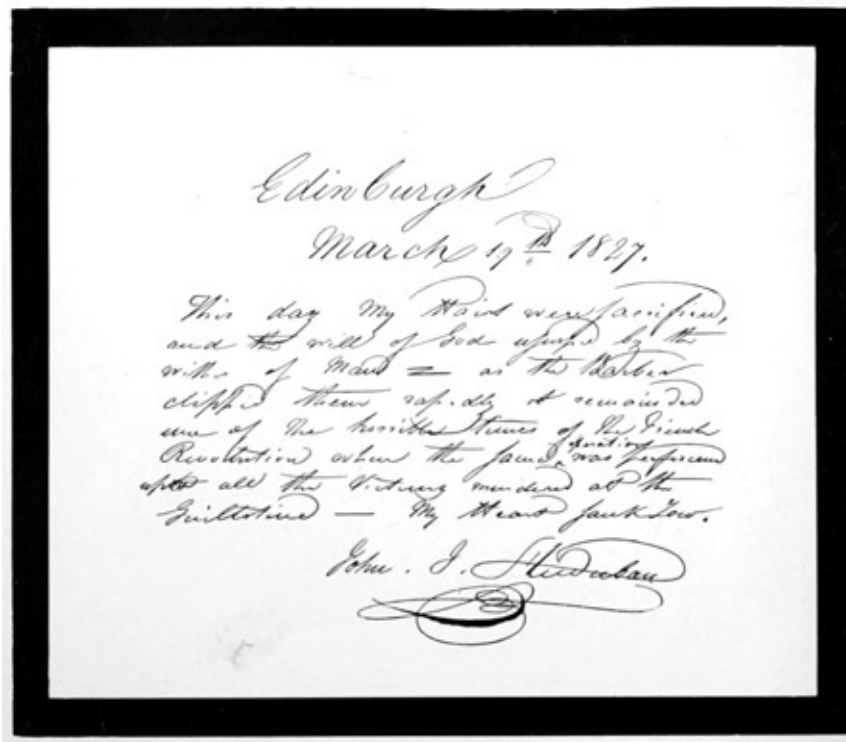 Edinburgh
March 19th 1827.
This day My Hairs were sacrificed,
and the will of God usurped by the
wishes of Man = as the Barber
clipped them rapidly it reminded
me of the horrible times of the French
Revolution when the same operation was performed
upon all the Victims murdered at the
Guillotine — My Heart sunk low.
John. J. Audubon